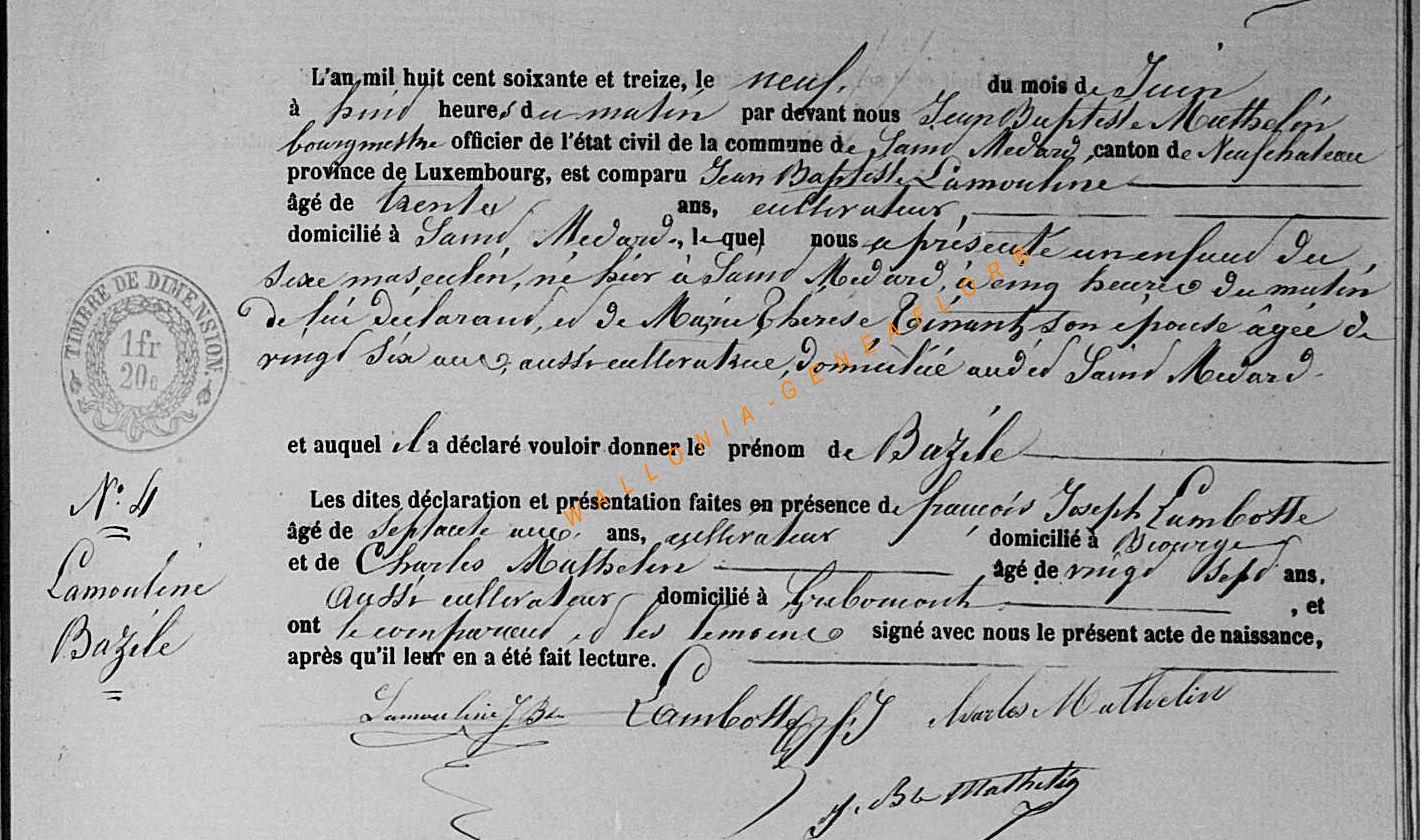 L'an mil huit cent soixante et treize, le neuf. du mois de Juin
à huit heures du matin par devant nous Jean Baptiste Mathelin
bourgmestre officier de l'état civil de la commune de Saint Médard, canton de Neufchateau
province de Luxembourg, est comparu Jean Baptiste Lamouline
âgé de trente ans, cultivateur,
domicilié à Saint Médard, lequel nous a présenté un enfant du
sexe masculin, né hier à Saint Médard, à cinq heures du matin
de lui déclarant, et de Marie Thérèse Tinant, son épouse âgée de
vingt six ans, aussi cultivatrice, domiciliée audit Saint Médard.
et auquel il a déclaré vouloir donner le prénom de Bazile
Les dites déclaration et présentation faites en présence de françois Joseph Lambotte
âgé de septante ans, ans, cultivateur domicilié à Biourge
et de Charles Mathelin âgé de vingt sept ans,
aussi cultivateur domicilié à Grubomont , et
ont le comparant et les témoins signé avec nous le présent acte de naissance,
après qu'il leur en a été fait lecture.
Lamouline J. Bte Lambotte f. J Charles Mathelin
J. Bte Mathelin
TIMBRE DE DIMENSION.
1fr
20c
N° 4
Lamouline
Bazile
WALLONIA-GENEAFLORE